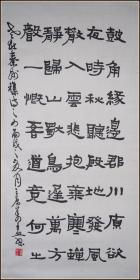 鼓角緣邊郡川原欲
夜時秋聽殷地發風
散入雲悲抱葉寒蟬
靜歸山獨鳥遲萬方
聲一慨吾道竟何之